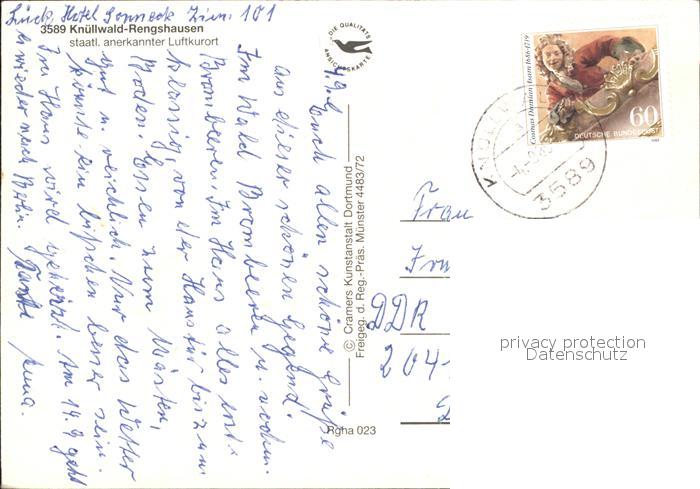 Lück, Hotel Sonneck Zim. 101
3589 Knüllwald-Rengshausen
staatl. anerkannter Luftkurort
DIE QUALITÄTS
ANSICHTSKARTE
4.9.
Euch allen schöne Grüße
aus dieser schönen Gegend.
Im Wald Brombeeren u. nochm.
Brombeeren. Im Haus alles erst-
klassig, von der Haustür bis zum
Boden. Essen zum Mästen,
gut u. reichlich. Nur das Wetter
könnte ein bißchen besser sein.
Im Haus wird geheizt. Am 14.9 geht
wieder nach Berlin. Tante
© Cramers Kunstanstalt Dortmund
Freigeg. d. Reg.-Präs. Münster 4483/72
Rgha 023
Cosmas Damian Asam 1686-1739
60
DEUTSCHE BUNDESPOST
KNÜLLW
3589
Frau
DDR
204
privacy protection
Datenschutz